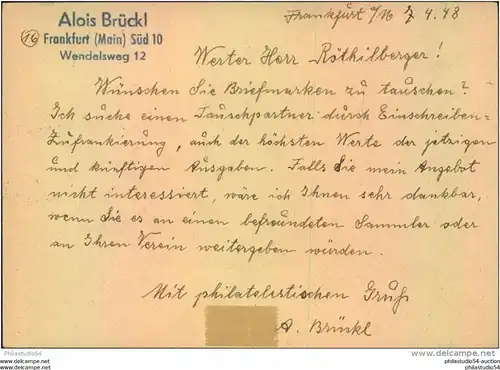 Alois Brückl
(16) Frankfurt (Main) Süd 10
Wendelsweg 12
Frankfurt a/M 7. 4. 48
Werter Herr Röthilberger!
Wünschen Sie Briefmarken zu tauschen?
Ich suche einen Tauschpartner durch Einschreiben=
Zufrankierung, auch der höchsten Werte der jetzigen
und künftigen Ausgaben. Falls Sie mein Angebot
nicht interessiert, wäre ich Ihnen sehr dankbar,
wenn Sie es an einen befreundeten Sammler oder
an Ihren Verein weitergeben würden.
Mit philatelistischen Gruß
A. Brückl
Philastudio54
philastudio54.com
philastudio54-auction
philastudio54.com